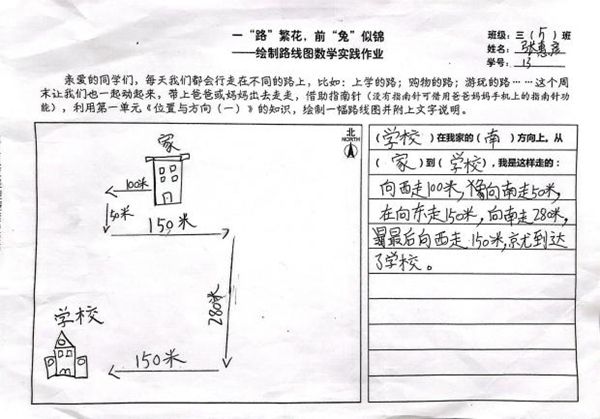 一“路”繁花，前“兔”似锦
——绘制路线图数学实践作业
班级：三（5）班
姓名：
学号：13
亲爱的同学们，每天我们都会行走在不同的路上，比如：上学的路；购物的路；游玩的路……这个周
末让我们也一起动起来，带上爸爸或妈妈出去走走，借助指南针（没有指南针可借用爸爸妈妈手机上的指南针功
能），利用第一单元《位置与方向（一）》的知识，绘制一幅路线图并附上文字说明。
北
NORTH
家
100米
50米
150米
280米
学校
150米
（学校）在我家的（南）方向上。从
（家）到（学校），我是这样走的：
向西走100米，向南走50米，
在向东走150米，向南走280米，
最后向西走150米，就到达
了学校。